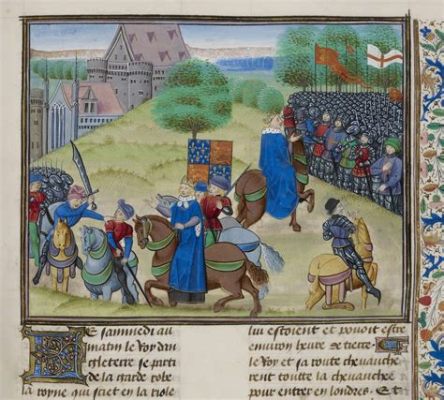 Le samedi au
matin le Roy dan
gleterre se parti
de la garde robe
la royne qui siet en la riole
lui estoient et povoit estre
environ heure de tierce
le Roy et sa route chevauche
rent toutte la chevauchee
pour entrer en londres. Et